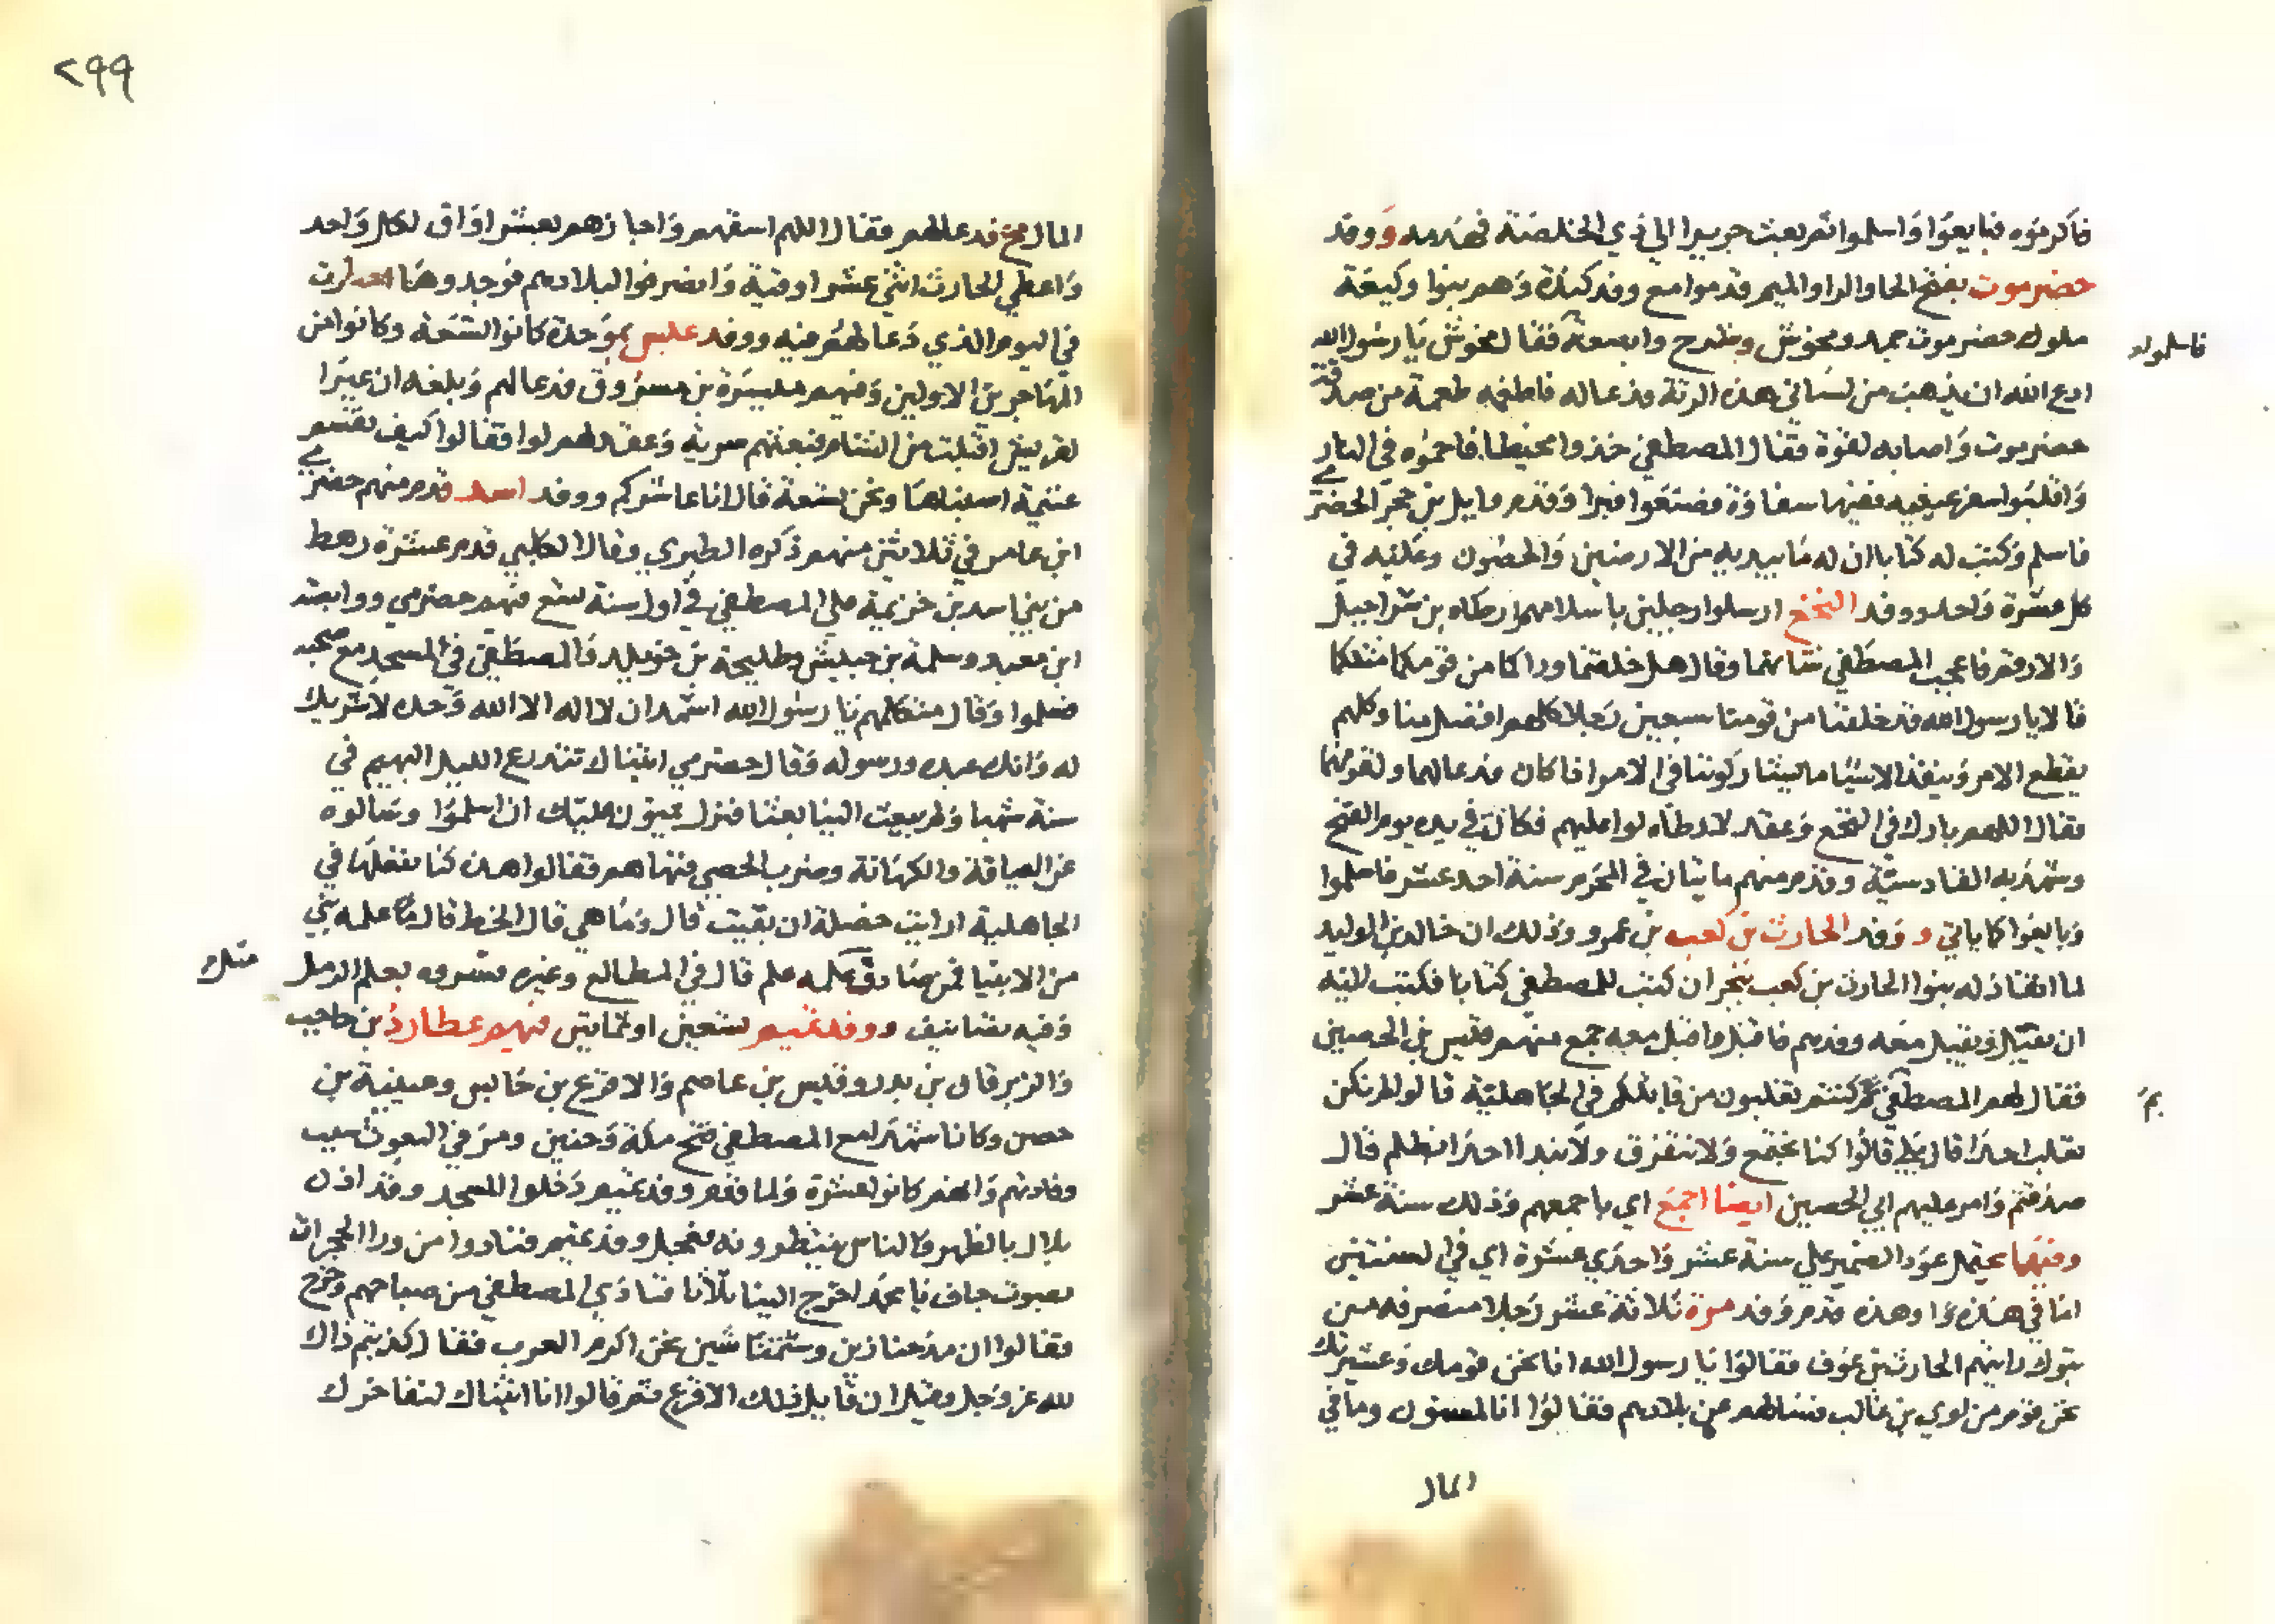 فاكرموه فبايعوا واسلموا ثم بعث جريرا الي ذي الخلصة فهدمه ووفد
حضرموت بفتح الحا والرا والميم قدموا مع وفد كندة وهم بنوا وكيعة
ملوك حضرموت حمد ومخوش ومشرح وابضعة فقال مخوش يا رسول الله
فاسلموا
ادع الله ان يذهب من لساني هذه الرتة فدعا له فاطعمه طعمة من صدقة
حضرموت واصابه لقوة فقال المصطفي خذوا مخيطا فاحموه في النار
واقلبوا شفر عينيه ففيها شفاوه فصنعوا فبرا وقدم وايل بن حجر الحضرمي
فاسلم وكتب له كتابا ان له ما بيديه من الارضين والحصون وعليه في
كل عشرة واحد ووفد النخع ارسلوا رجلين باسلامهم ارطاه بن شراحيل
والارقم فاعجب المصطفي شانهما وقال هل خلفتما وراكما من قومكما مثلكما
قالا يا رسول الله قد خلفنا من قومنا سبعين رجلا كلهم افضل منا وكلهم
يقطع الامر وينفذ الاشيا ما يشاركوننا في الامر اذا كان فدعا لهما ولقومهما
فقال اللهم بارك في النخع وعقد لارطاه لوا عليهم فكان في يده يوم الفتح
وشهد به القادسية وقدم منهم مايتان في المحرم سنة احد عشر فاسلموا
وبايعوا كما ياتي ووفد الحارث بن كعب بن عمرو وذلك ان خالد بن الوليد
لما انقاد له بنوا الحارث بن كعب بنجران كتب للمصطفي كتابا فكتب اليه
ان يقبل ويقبل معه وفدهم فاقبل واقبل معه جمع منهم قيس بن الحصين
فقال لهم المصطفي بم كنتم تغلبون من قاتلكم في الجاهلية قالوا لم نكن
بم
نغلب احدا قال بلي قالوا كنا نجتمع ولا نتفرق ولا نبدا احدا بظلم قال
صدقتم وامر عليهم ابي الحصين ايضا اجمع اي باجمعهم وذلك سنة عشر
وفيها يحتمل عود الضمير علي سنة عشر واحدي عشرة اي في السنتين
اما في هذه وا وهذه قدم وفد مرة ثلاثة عشر رجلا منصرفه من
تبوك راسهم الحارث بن عوف فقالوا يا رسول الله انا نحن قومك وعشيرتك
نحن قوم من لوي بن غالب فسالهم عن بلادهم فقالوا انا لمسنتون وما في
المال
٢٩٩
المال مخ فدعا لهم فقال اللهم اسقهم واجازهم بعشر اواق لكل واحد
واعطي الحارث اثني عشر اوقية وانصرفوا لبلادهم فوجدوها امطرت
في اليوم الذي دعا لهم فيه ووفد عبس بموحدة كانوا تسعة وكانوا من
المهاجرين الاولين ومنهم ميسرة بن مسروق فدعا لهم وبلغه ان عيرا
لقريش اقبلت من الشام فبعثهم سرية وعقد لهم لوا فقالوا كيف نقسم
غنيمة اصبناها ونحن تسعة قال انا عاشركم ووفد اسد قدم منهم حضرمي
ابن عامر في ثلاثين منهم ذكره الطبري وقال الكلبي قدم عشرة رهط
من بني اسد بن خزيمة علي المصطفي في اول سنة تسع فيهم حضرمي ووابصة
ابن معبد وسلمة بن حبيش وطليحة بن خويلد والمصطفي في المسجد مع صحبه
فسلموا وقال متكلمهم يا رسول الله اشهد ان لا اله الا الله وحده لا شريك
له وانك عبده ورسوله وقال حضرمي اتيناك نتدرع الليل البهيم في
سنة شهبا ولم تبعث الينا بعثا فنزل يمنون عليك ان اسلموا وسالوه
عن العيافة والكهانة وضرب الحصي فنهاهم فقالوا هذه كنا نفعلها في
الجاهلية ارايت خصلة ان بقيت قال وما هي قال الخط قال ما علمه نبي
من الانبيا فمن صادق علمه علم قال في المطالع وغيره نشروه بعلم الرمل
مثل
وفيه تصانيف ووفد تميم تسعين او ثمانين فيهم عطارد بن حاجب
والزبرقان بن بدر وقيس بن عاصم والاقرع بن حابس وعيينة بن
حصن وكانا شهدا مع المصطفي فتح مكة وحنين ومر في البعوث سبب
وفادتهم وانهم كانوا عشرة ولما قدم وفد تميم دخلوا المسجد وقد اذن
بلال بالظهر والناس ينتظرونه فعجل وفد تميم فنادوا من ورا الحجرات
بصوت جاف يا محمد اخرج الينا ثلاثا فتاذي المصطفي من صياحهم وخرج
فقالوا ان مدحنا زين وشتمنا شين نحن اكرم العرب فقال كذبتم ذاك
لله عز وجل وقيل ان قايل ذلك الاقرع ثم قالوا انا اتيناك لنفاخرك